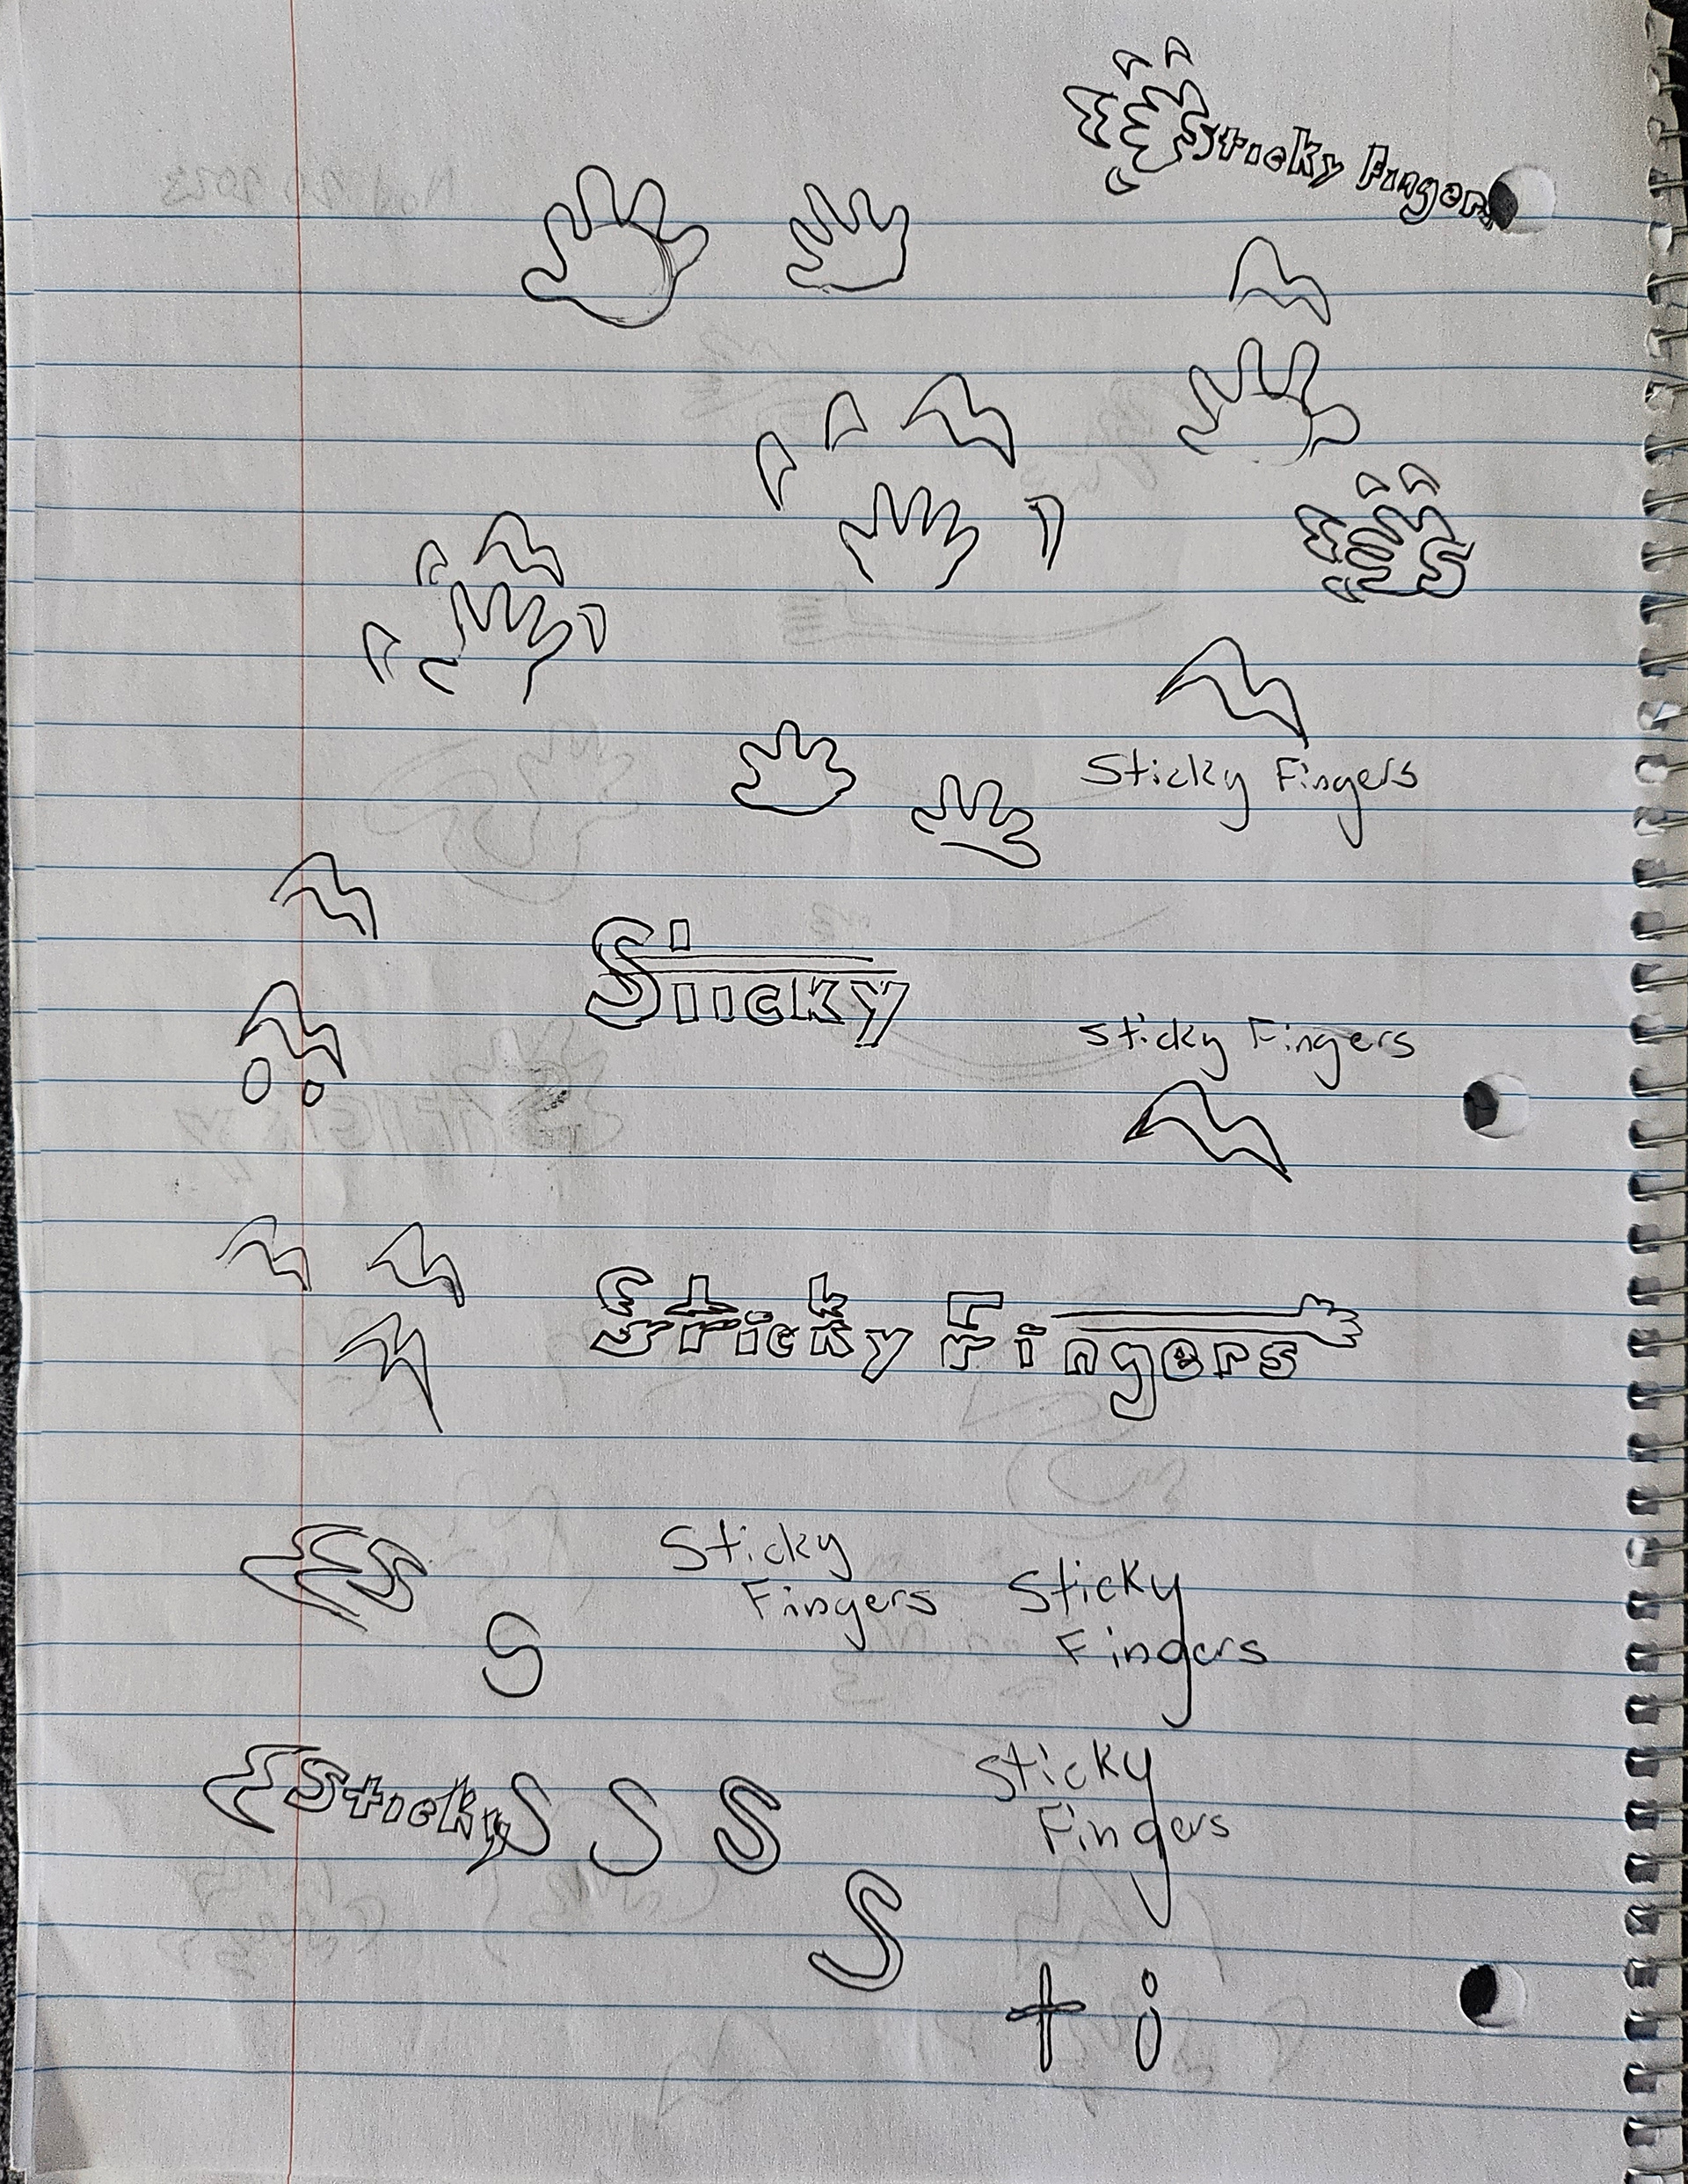 Sticky Finger
S
Sticky Fingers
Sticky
Sticky Fingers
Sticky Fingers
S
Sticky
Fingers
Sticky
Fingers
S
Sticky
S S S
Sticky
Fingers
S
t i